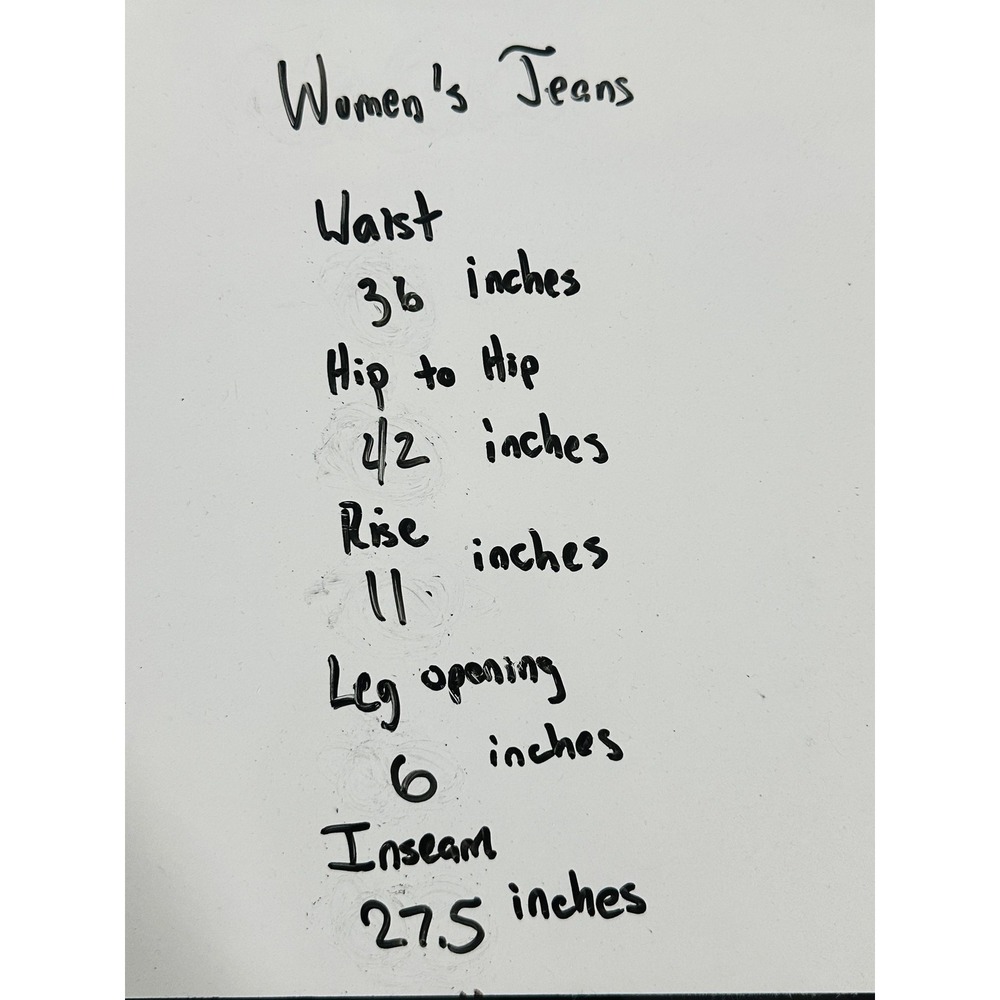 Women's Jeans
Waist
36 inches
Hip to Hip
42 inches
Rise
11 inches
Leg opening
6 inches
Inseam
27.5 inches